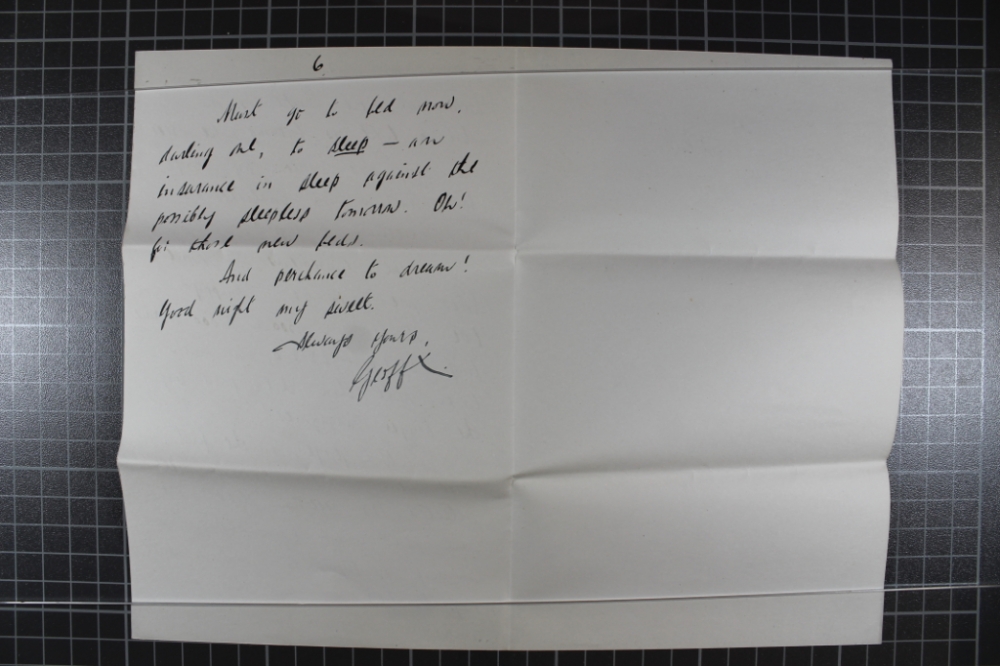 6
Must go to bed now,
darling one, to sleep – an
insurance in sleep against the
possibly sleepless tomorrow. Oh!
for those new beds.
And perchance to dream!
Good night my sweet.
Always yours,
Geoff X